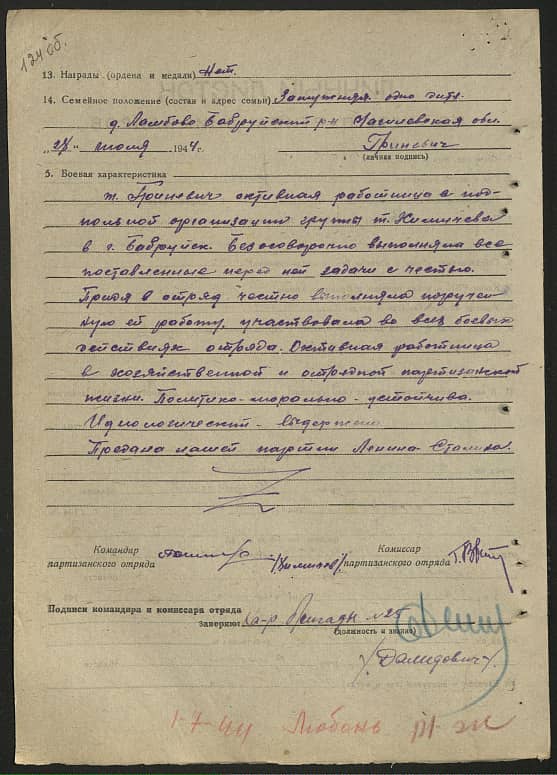 124 об.
13. Награды (ордена и медали) Нет.
14. Семейное положение (состав и адрес семьи) Замужняя одно дитя.
д. Ламбово Бабруйский р-н Могилевская обл.
„28" июля 1944 г. Гриневич
(личная подпись)
5. Боевая характеристика
т. Гриневич активная работница в под-
польной организации группы т. Химичева
в г. Бабруйск. Безоговорочно выполняла все
поставленные перед ней задачи с честью.
Придя в отряд честно выполняла поручен
ную ей работу, участвовала во всех боевых
действиях отряда. Активная работница
в хозяйственной и отрядной партизанской
жизни. Политико-морально-устойчива.
Идиологически-выдержана
Предана нашей партии Ленина-Сталина.
Командир
партизанского отряда /Химичев/
Комиссар
партизанского отряда
Подписи командира и комиссара отряда
заверяю: Ка-р бригады №25
(должность и звание)
/Далидович/
1-7-44 Любань